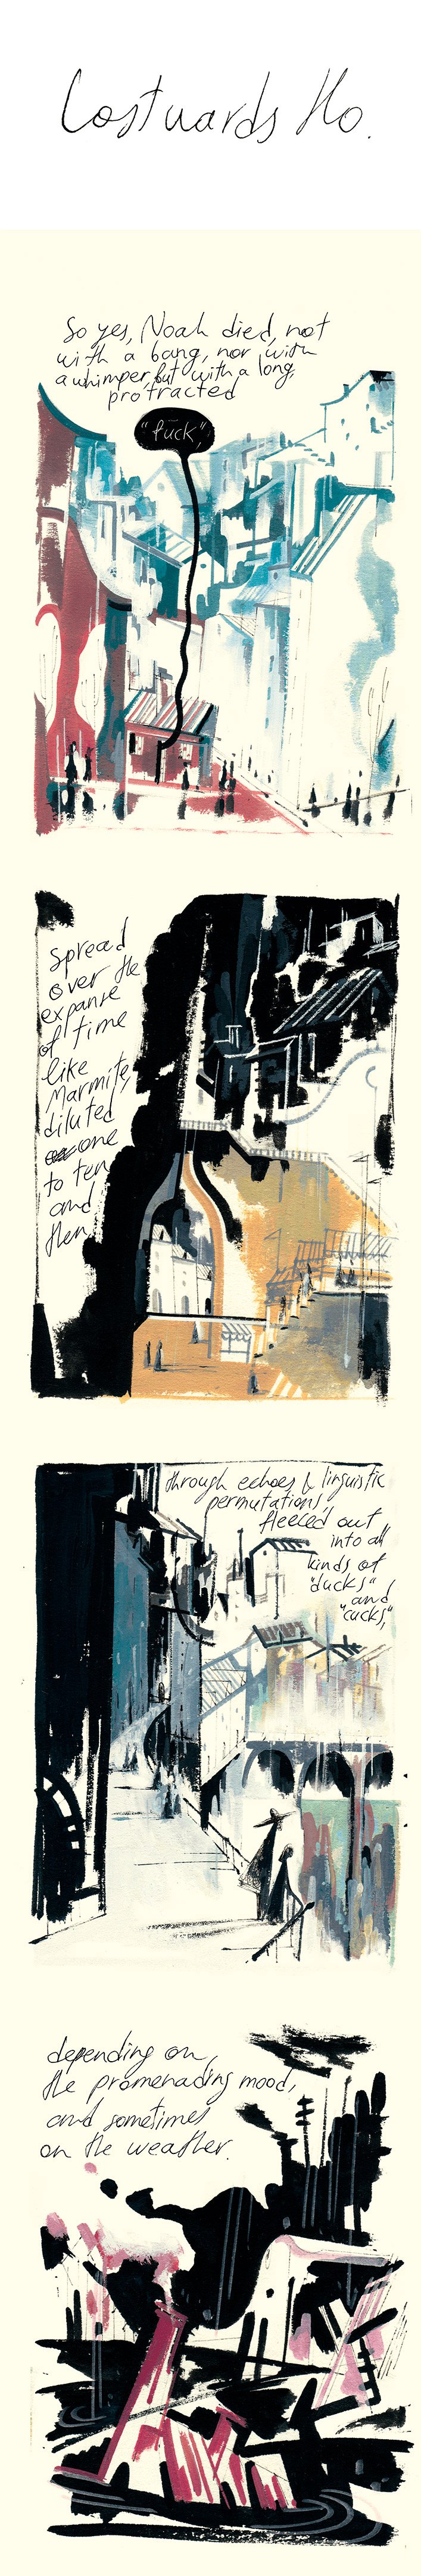 Costwards Ho.
So yes, Noah died, not
with a bang, nor with
a whimper, but with a long,
protracted
"fuck",
spread
over the
expanse
of time
like
Marmite,
diluted
one
to ten
and
then
through echoes & linguistic
permutations,
fleeced out
into all
kinds of
"ducks"
and
"cucks,"
depending on
the promenading mood,
and sometimes
on the weather.